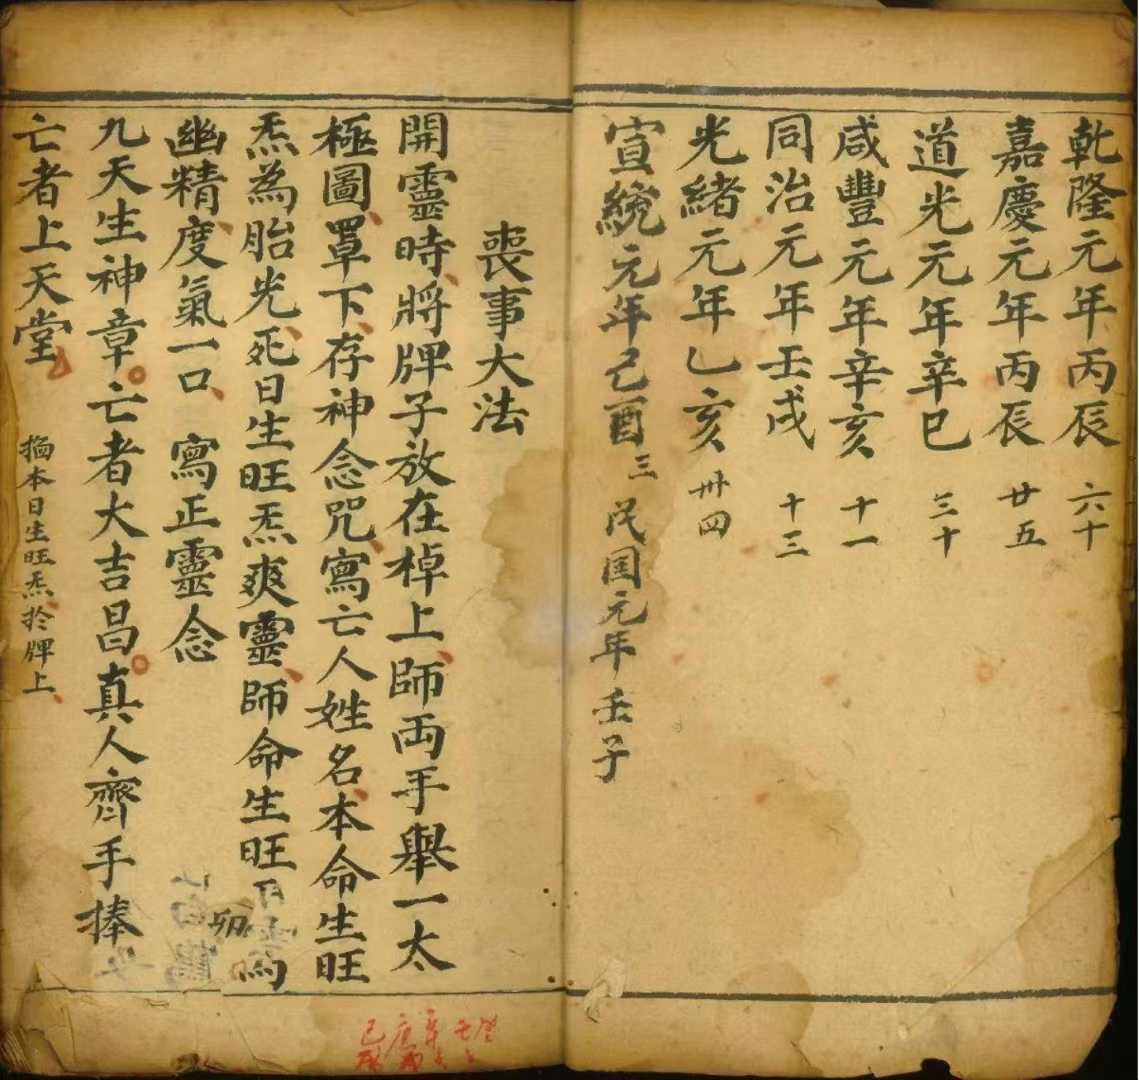 乾隆元年丙辰 六十
嘉慶元年丙辰 廿五
道光元年辛巳 三十
咸豐元年辛亥 十一
同治元年壬戌 十三
光緒元年乙亥 卅四
宣統元年己酉 三 民国元年壬子
喪事大法
開靈時將牌子放在棹上師両手舉一太
極圖罩下存神念咒寫亡人姓名本命生旺
炁為胎光死日生旺炁爽靈師命生旺
幽精度氣一口 寫正靈念
卯
九天生神章亡者大吉昌真人齊手捧
亡者上天堂 本日生旺炁扵牌上